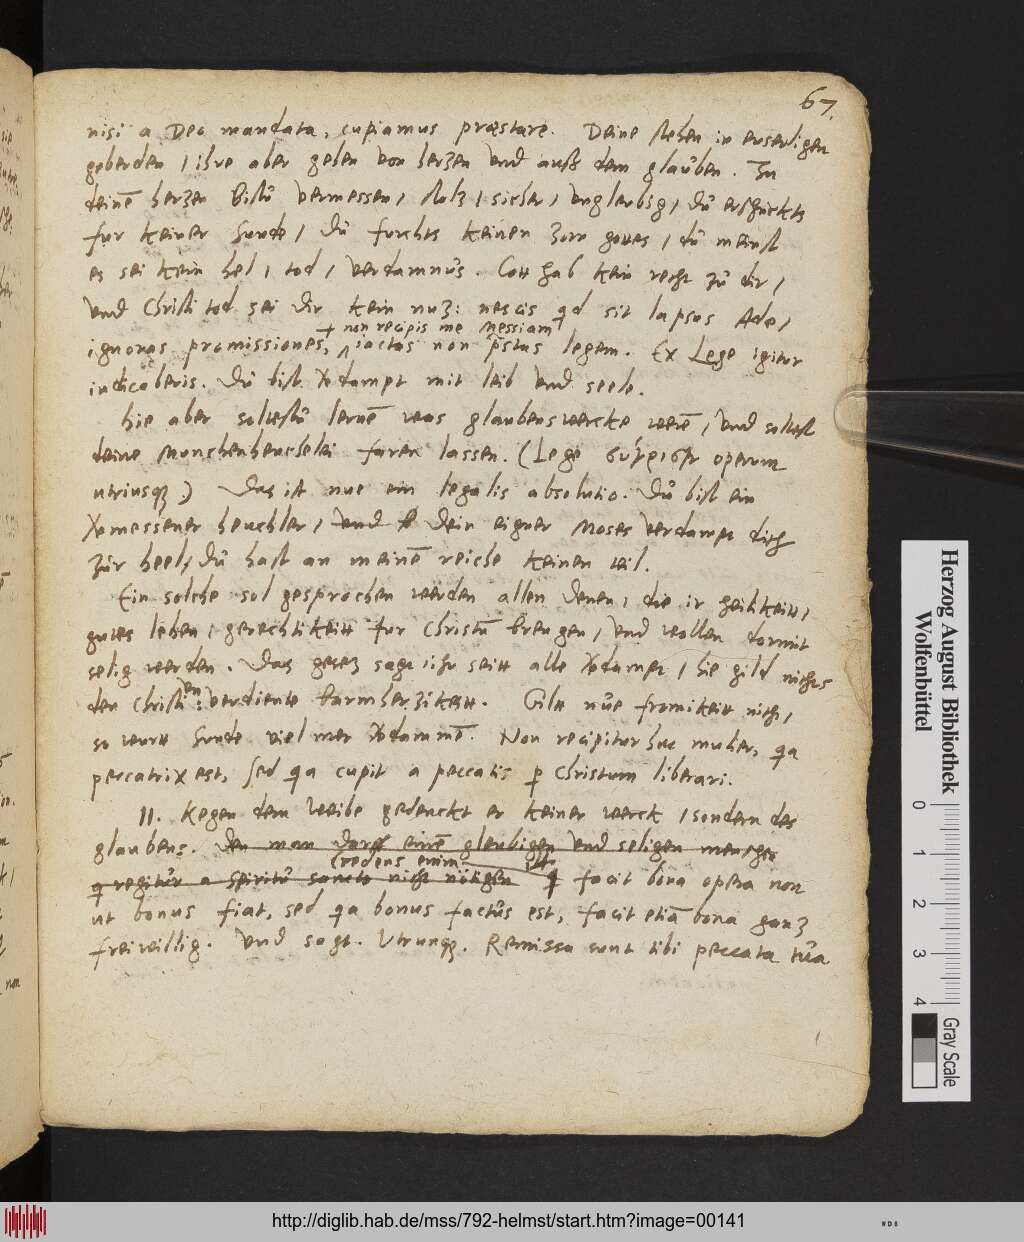 67.
nisi a Deo mandata, cupiamus præstare. Deine stehen in euserligen
geberden / ihre aber gehen von herzen und auß dem glauben. In
deinē herzen bistu vermessen / stolz / sicher / ungleubig / du erschrickts
fur keiner sunde / du furchts keinen zorn gottes / du meinst
es sei kein hel / tod / verdamnus. Gott hab kein recht zu dir /
und Christi tod sei dir kein nuz: nescis qd sit lapsus Adæ /
+ non recipis me Messiam
ignoras promissiones, iactas non legem. Ex Lege igitur
iudicaberis. Du bist vdampt mit leib und seele.
Hie aber soltestu lernē was glaubenswercke werē / und soltest
deine Munchenheuchelei faren lassen. (Lege operum
utriusq.) Das ist nue ein legalis absolutio. Du bist ein
vmessener heuchler / und dein eigner Moses verdampt dich
zur heel / du hast an meinē reiche keinen teil.
Ein solchs sol gesprochen werden allen denen / die ir heilikeitt /
gutes leben / gerechtikeitt fur Christū brengen / und wollen dormit
selig werden. Das gesez sagt ihr seitt alle vdampt / hie gild nichts
den Christi en: verdiente barmherzikeitt. Gilt nue fromikeitt nicht /
so wertt sunde viel mer vdammē. Non recipitur hæc mulier, qa
peccatrix est, sed qa cupit a peccatis p Christum liberari.
II. Kegen dem Weibe gedenckt er keiner werck / sondern des
glaubens. Den man darff einē gleubigen und seligen menschen
Credens enim
q regitur a Spiritu sancto nicht nötigen facit bona opera non
ut bonus fiat, sed qa bonus factus est, facit etiā bona ganz
freiwillig. Und sagt. Utrunq. Remissa sunt tibi peccata tua
Herzog August Bibliothek
Wolfenbüttel
0 1 2 3 4
Gray Scale
http://diglib.hab.de/mss/792-helmst/start.htm?image=00141